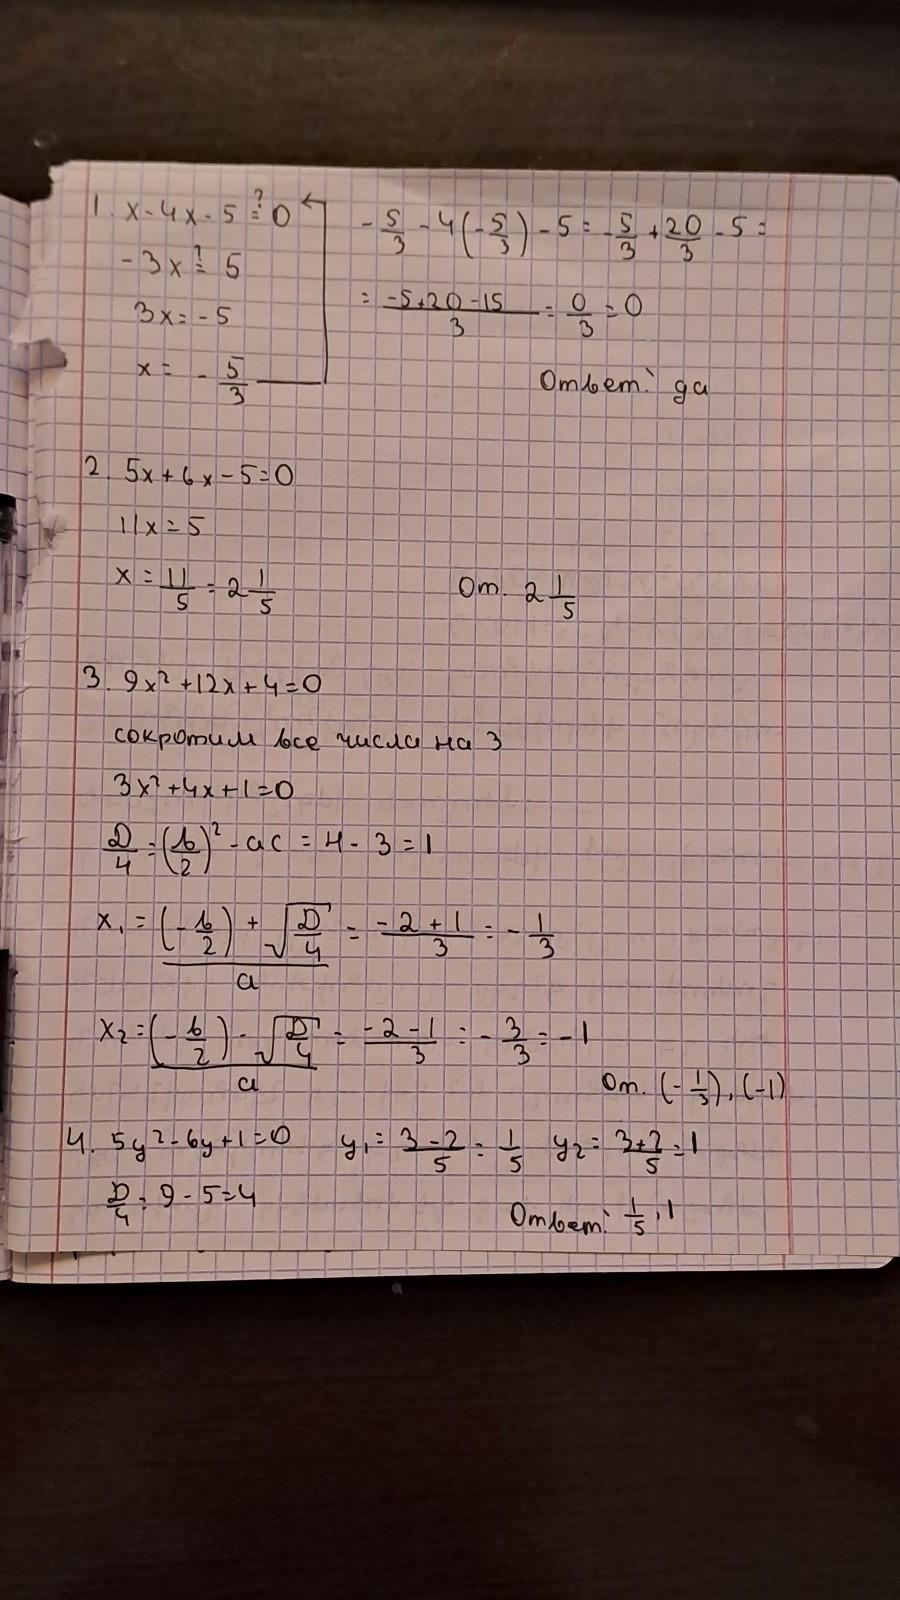 1. x - 4x - 5 ≟ 0
-3x ≟ 5
3x = -5
x = -5/3
-5/3 - 4(-5/3) - 5 = -5/3 + 20/3 - 5 =
= (-5+20-15)/3 = 0/3 = 0
Ответ: да
2. 5x + 6x - 5 = 0
11x = 5
x = 11/5 = 2 1/5
От. 2 1/5
3. 9x² + 12x + 4 = 0
сократим все числа на 3
3x² + 4x + 1 = 0
D/4 = (b/2)² - ac = 4 - 3 = 1
x₁ = ((-b/2) + √(D/4))/a = (-2+1)/3 = -1/3
x₂ = ((-b/2) - √(D/4))/a = (-2-1)/3 = -3/3 = -1
От. (-1/3), (-1)
4. 5y² - 6y + 1 = 0 y₁ = (3-2)/5 = 1/5 y₂ = (3+2)/5 = 1
D/4 = 9 - 5 = 4
Ответ: 1/5, 1